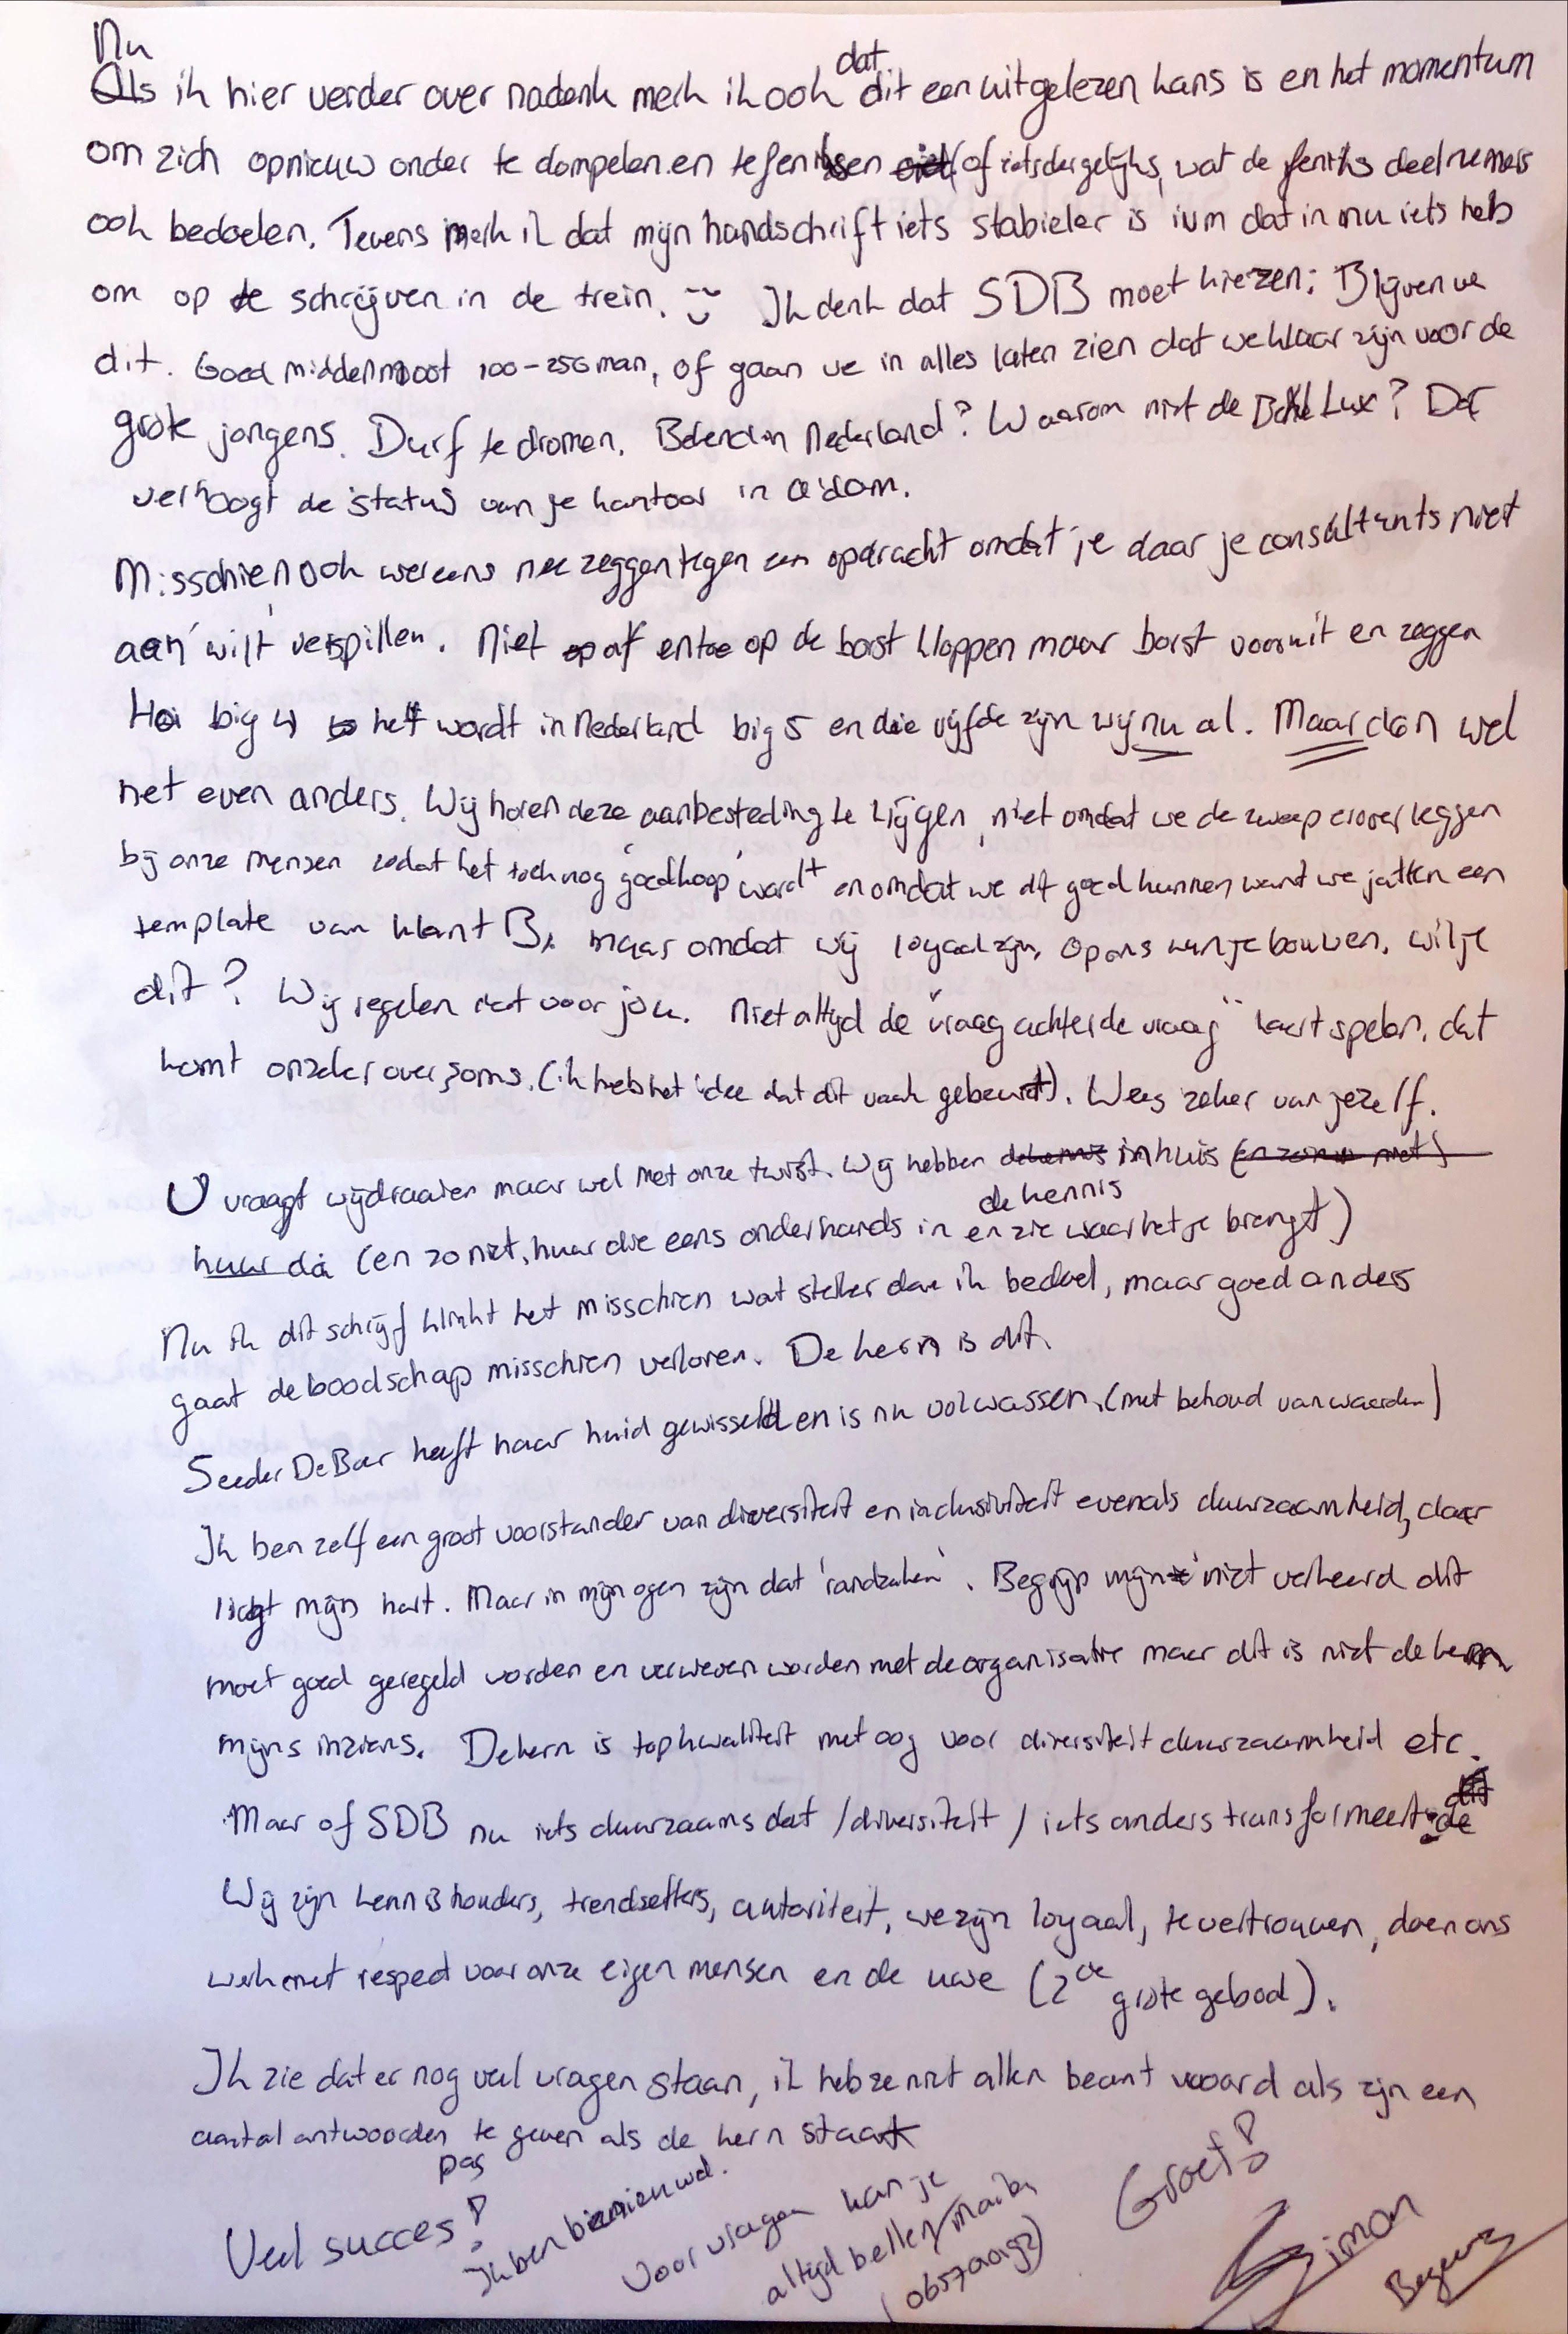 Nu
Als ik hier verder over nadenk merk ik ook dat dit een uitgelezen kans is en het momentum
om zich opnieuw onder te dompelen en te feniksen (of iets dergelijks, wat de feniks deelnemers
ook bedoelen. Tevens merk ik dat mijn handschrift iets stabieler is ivm dat in nu iets heb
om op te schrijven in de trein. Ik denk dat SDB moet kiezen: Blijven we
dit. Goed middenmoot 100-250 man, of gaan we in alles laten zien dat we klaar zijn voor de
grote jongens. Durf te dromen. Bekend in Nederland? Waarom niet de BeNeLux? Dat
verhoogt de status van je kantoor in a'dam.
Misschien ook wel eens nee zeggen tegen een opdracht omdat je daar je consultants niet
aan wilt verspillen. Niet af en toe op de borst kloppen maar borst vooruit en zeggen
Hoi big 4 het wordt in Nederland big 5 en die vijfde zijn wij nu al. Maar dan wel
net even anders. Wij horen deze aanbesteding te krijgen, niet omdat we de zweep erover leggen
bij onze mensen zodat het toch nog 'goedkoop' wordt en omdat we dit goed kunnen want we jatten een
template van klant B, maar omdat wij loyaal zijn. Op ons kun je bouwen. Wil je
dit? Wij regelen dat voor jou. Niet altijd de "vraag achter de vraag" kaart spelen, dat
komt onzeker over soms. (ik heb het idee dat dit vaak gebeurt). Wees zeker van jezelf.
U vraagt wij draaien maar wel met onze twist. Wij hebben de kennis in huis (en zo niet)
huur die (en zo niet, huur die eens onderhands in en zie waar het je brengt)
Nu ik dit schrijf klinkt het misschien wat steller dan ik bedoel, maar goed anders
gaat de boodschap misschien verloren. De kern is dit.
Seeder De Boer heeft haar huid gewisseld en is nu volwassen. (met behoud van waarden)
Ik ben zelf een groot voorstander van diversiteit en inclusiviteit evenals duurzaamheid, daar
ligt mijn hart. Maar in mijn ogen zijn dat 'randzaken'. Begrijp mij niet verkeerd dit
moet goed geregeld worden en verweven worden met de organisatie maar dit is niet de kern
mijns inziens. De kern is topkwaliteit met oog voor diversiteit duurzaamheid etc.
Maar of SDB nu iets duurzaams dat / diversiteit / iets anders transformeert: dit
Wij zijn kennishouders, trendsetters, autoriteit, we zijn loyaal, te vertrouwen, doen ons
werk met respect voor onze eigen mensen en de uwe (2de grote gebod).
Ik zie dat er nog veel vragen staan, ik heb ze niet allen beantwoord als zijn een
aantal antwoorden te geven als de kern staat
Veel succes!
Ik ben pas benieuwd.
Voor vragen kan je
altijd bellen/mailen
(0657400192)
Groet!
Simon